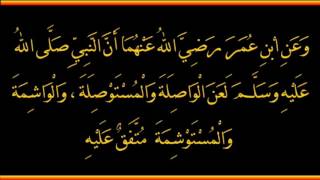 وَعَنِ ابْنِ عُمَرَ رَضِيَ اللهُ عَنْهُمَا أَنَّ النَّبِيَّ صَلَّى اللهُ
عَلَيْهِ وَسَلَّمَ لَعَنَ الْوَاصِلَةَ وَالْمُسْتَوْصِلَةَ، وَالْوَاشِمَةَ
وَالْمُسْتَوْشِمَةَ مُتَّفَقٌ عَلَيْهِ